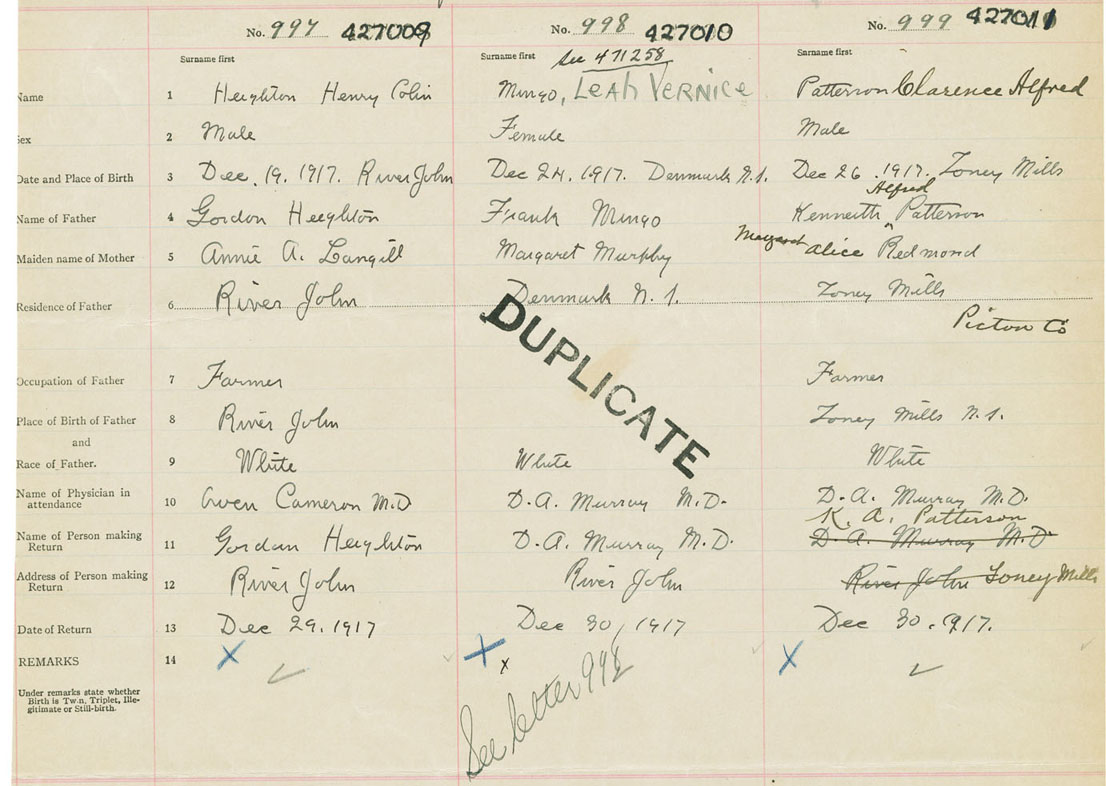 No. 997 427009
No. 998 427010
No. 999 427011
Surname first
Surname first See 471258
Surname first
Name 1 Heighton Henry Colin Mingo, Leah Vernice Patterson Clarence Alfred
Sex 2 Male Female Male
Date and Place of Birth 3 Dec. 19. 1917. River John Dec 24, 1917. Denmark N.S. Dec 26. 1917. Toney Mills
Alfred
Name of Father 4 Gordon Heighton Frank Mingo Kenneith Patterson
Maiden name of Mother 5 Annie A. Langill Margaret Murphy Margaret Alice Redmond
Residence of Father 6 River John Denmark N.S. Toney Mills
Pictou Co
DUPLICATE
Occupation of Father 7 Farmer Farmer
Place of Birth of Father 8 River John Toney Mills N.S.
and
Race of Father. 9 White White White
Name of Physician in
attendance 10 Owen Cameron M.D D.A. Murray M.D. D.A. Murray M.D.
K. A. Patterson
Name of Person making
Return 11 Gordon Heighton D.A. Murray M.D. D.A. Murray M.D
Address of Person making
Return 12 River John River John River John Toney Mills
Date of Return 13 Dec 29. 1917 Dec 30, 1917 Dec 30. 1917.
REMARKS 14 X ✓ X x X ✓
Under remarks state whether
Birth is Twin, Triplet, Ille-
gitimate or Still-birth.
See letter 998